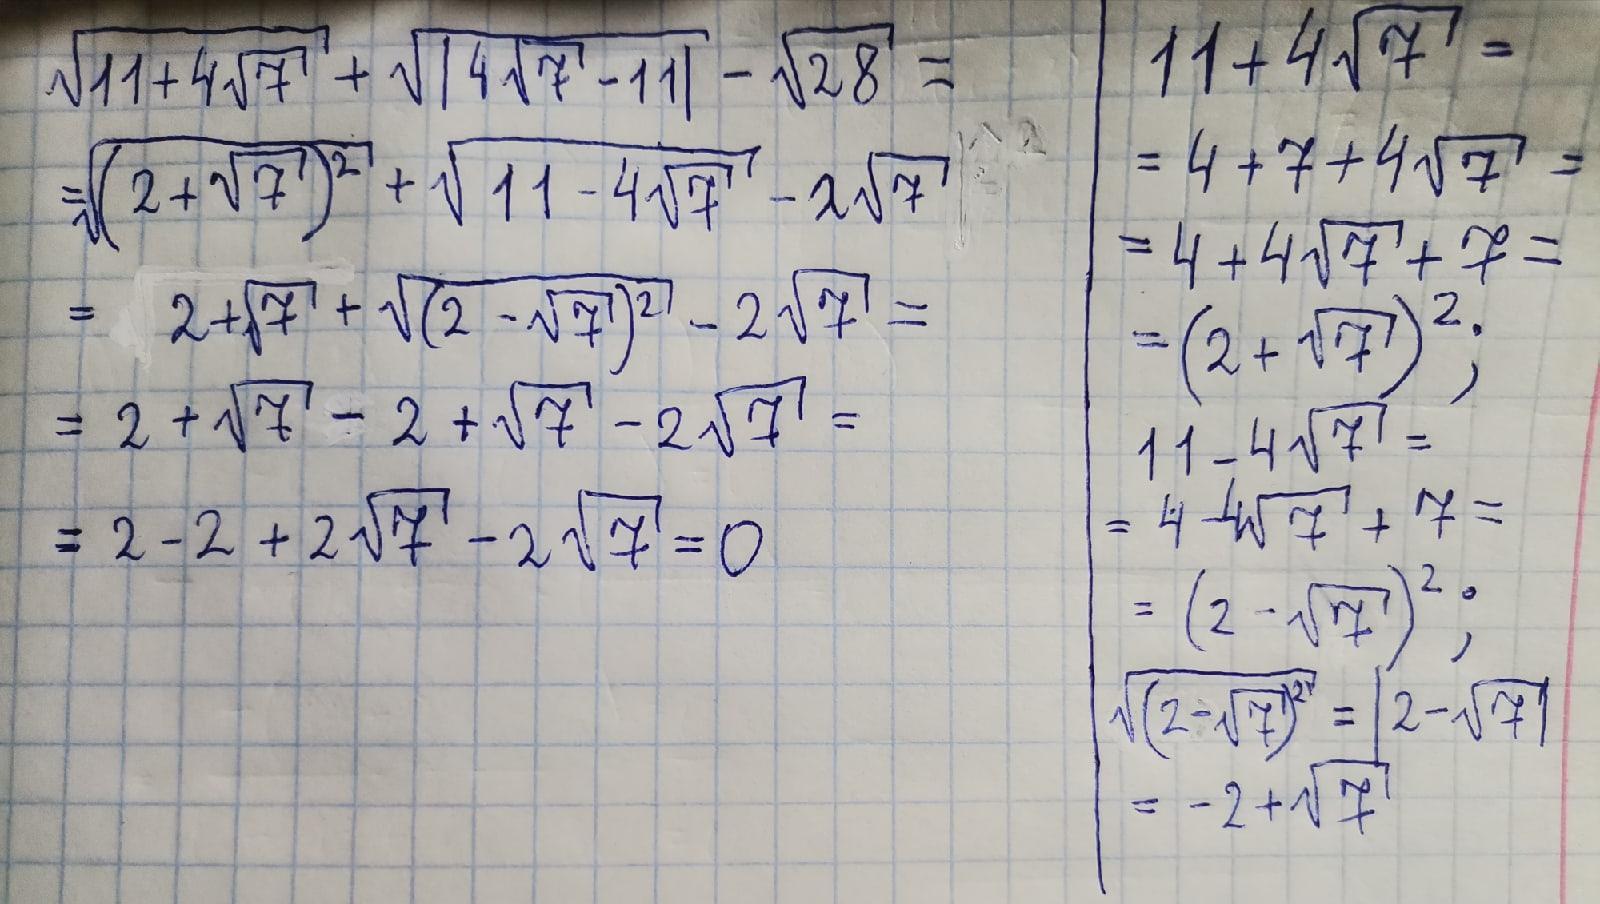 √(11+4√7) + √|4√7 - 11| - √28 =
= √((2+√7)²) + √(11 - 4√7) - 2√7
= 2+√7 + √((2 - √7)²) - 2√7 =
= 2 + √7 - 2 + √7 - 2√7 =
= 2 - 2 + 2√7 - 2√7 = 0
11 + 4√7 =
= 4 + 7 + 4√7 =
= 4 + 4√7 + 7 =
= (2 + √7)²;
11 - 4√7 =
= 4 - 4√7 + 7 =
= (2 - √7)²;
√((2-√7)²) = |2-√7|
= -2 + √7